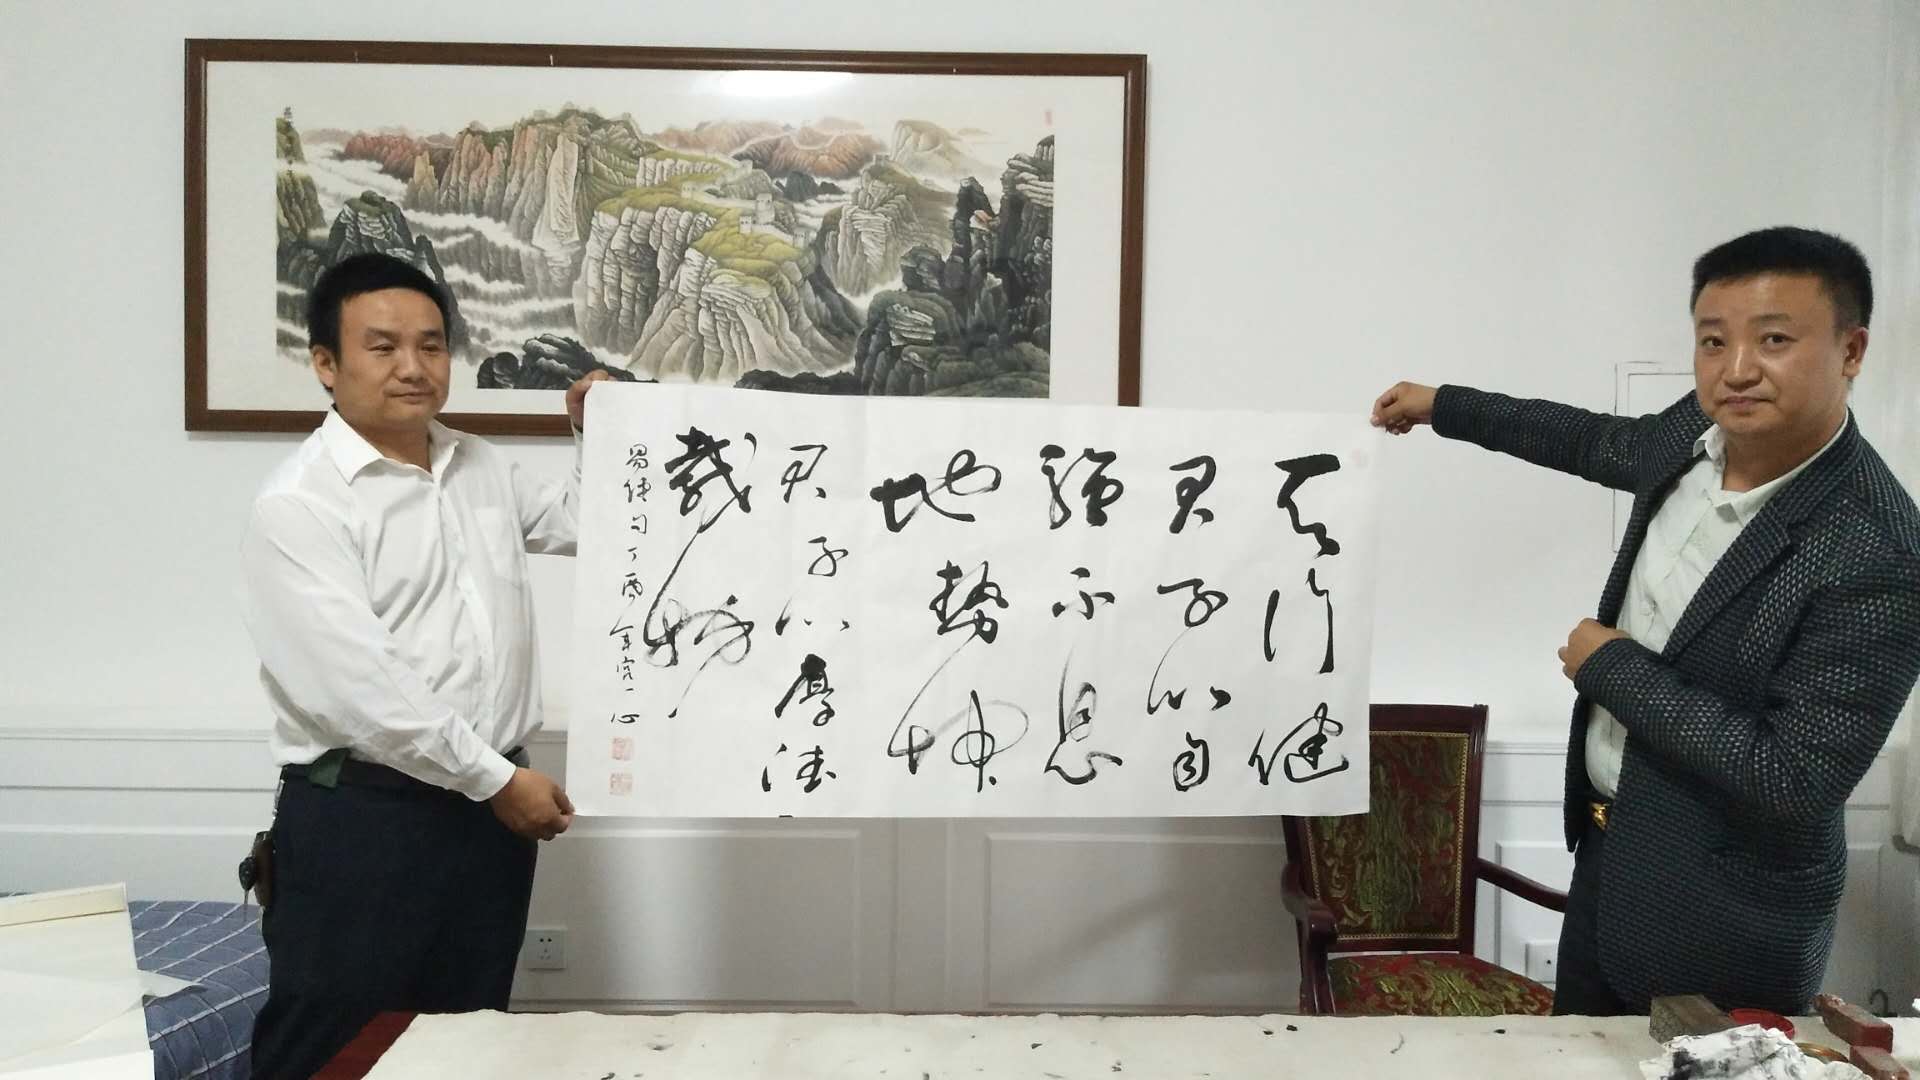 天行健
君子以自
强不息
地势坤
君子以厚德
载物
易经句丁酉年完一心